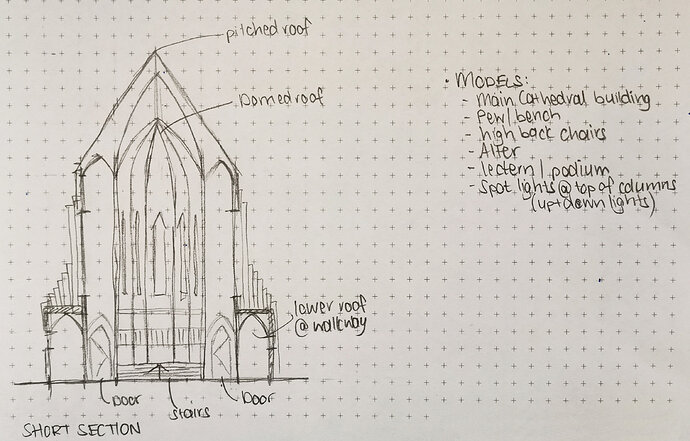 pitched roof
Domed roof
lower roof
@ walkway
Door
stairs
Door
SHORT SECTION
• MODELS:
- Main Cathedral building
- Pew/bench
- high back chairs
- Alter
- lectern / podium
- Spot lights @ top of columns
(up+down lights)